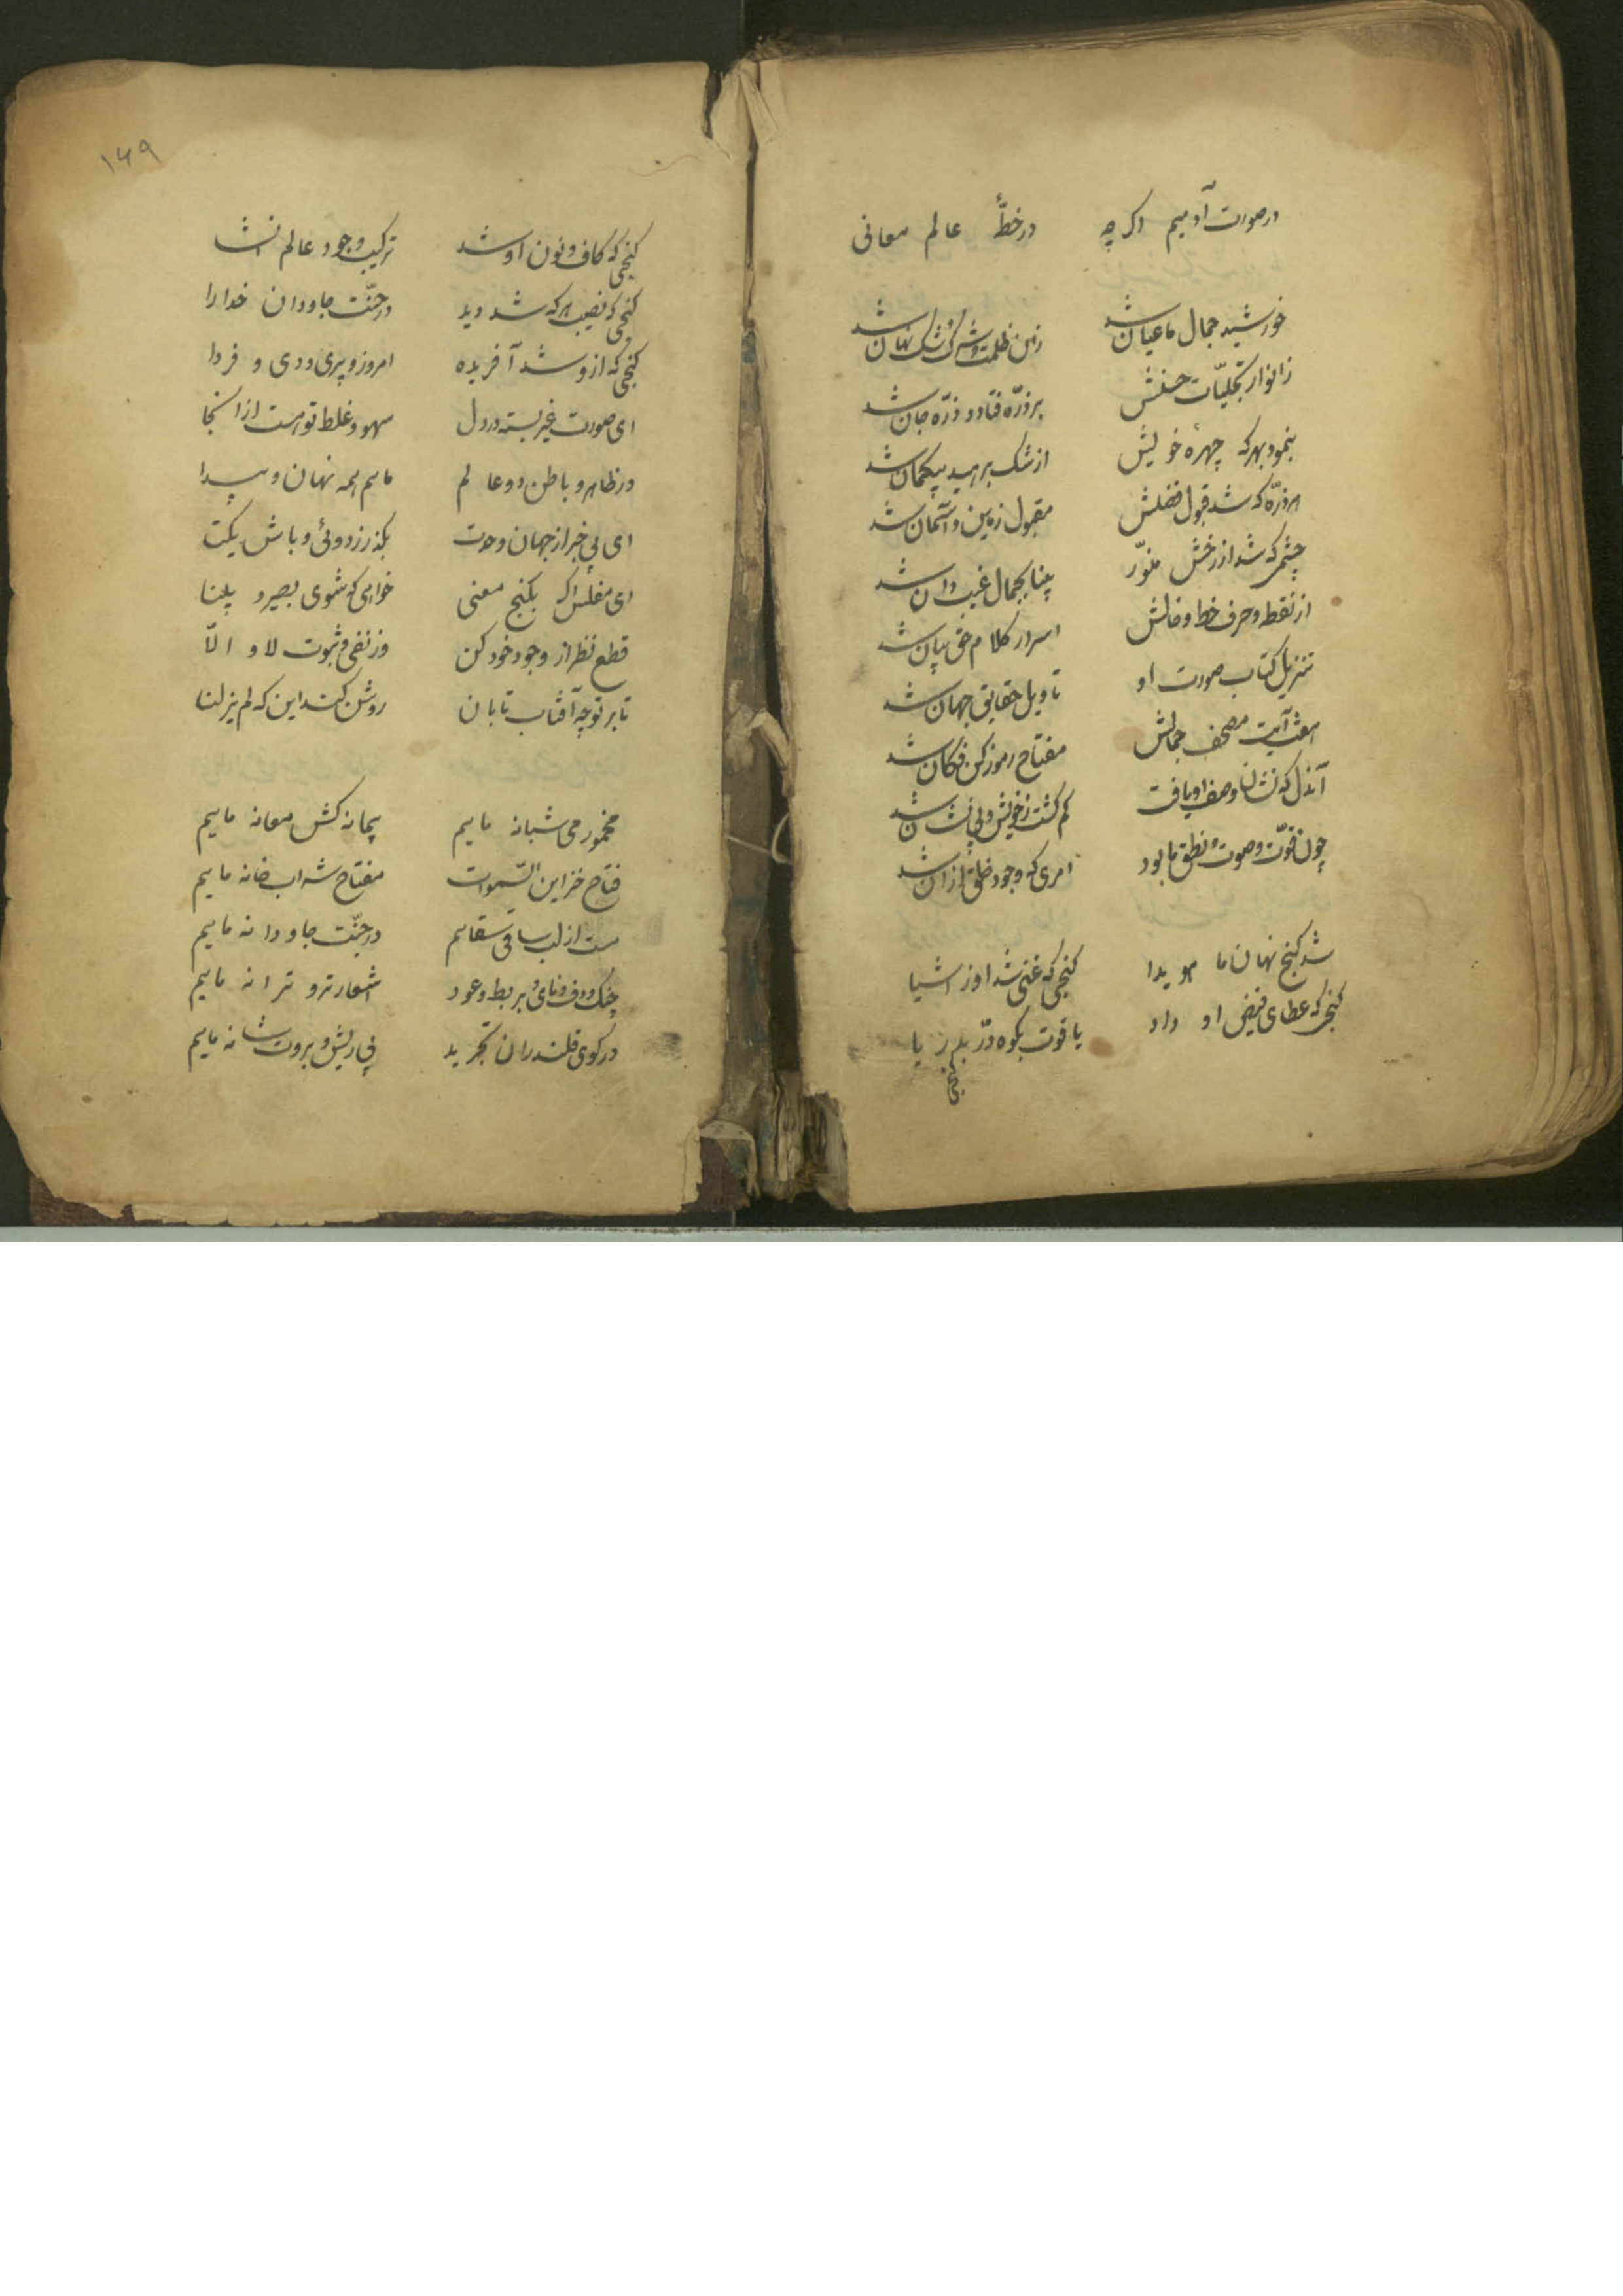 در صورت آدمیم اکر چه در خطّهٔ عالم معانی
خورشید جمال ما عیان شد زان ظلمت و شرک و شک نهان شد
ز انوار تجلیّات حسنش بر ذرّه فتاد و ذرّه جان شد
بنمود بهر که چهرهٔ خویش از شک برهید بیکمان شد
هر ذرّه که شد قبول فضلش مقبول زمین و آسمان شد
چشمی که شد از رخش منوّر بینا بجمال غیب دان شد
از نقطه و حرف خط و خالش اسرار کلام حق بیان شد
تنزیل کتاب صورت او تاویل حقایق جهان شد
هفت آیت مصحف جمالش مفتاح رموز کن فکان شد
آندل که نشان وصف او یافت کم کشت ز خویش و بی نشان شد
چون قوّت و صوت و نطق ما بود امری که وجود خلق از آن شد
شد کنج نهان ما هویدا کنجی که غنی شد او ز اشیا
کنجی که عطای فیض او داد یاقوت بکوه و درّ بدریا
کنجی
۱۴۹
کنجی که کاف و نون او شد ترکیب وجود عالم انشا
کنجی که نصیب هر که شد دید در جنّت جاودان خدا را
کنجی که ازو شد آفریده امروز و پری و دی و فردا
ای صورت غیر بسته در دل سهو و غلط تو هست از انجا
در ظاهر و باطن دو عالم ماییم همه نهان و پیدا
ای بی خبر از جهان وحدت بکذر ز دوئی و باش یکتا
ای مفلس اکر بکنج معنی خواهی که شوی بصیر و بینا
قطع نظر از وجود خود کن وز نفی و ثبوت لا و الّا
تا بر تو چو آفتاب تابان روشن کند این که لم یزلنا
مخمور می شبانه ماییم پیمانه کش مغانه ماییم
فتاح خزاین السّموات مفتاح شرابخانه ماییم
مست از لب ساقی سقاهم در جنّت جاودانه ماییم
چنک و دف و نای و بربط و عود اشعار تر و ترانه ماییم
در کوی قلندران تجرید بی ریش و بروت شانه ماییم